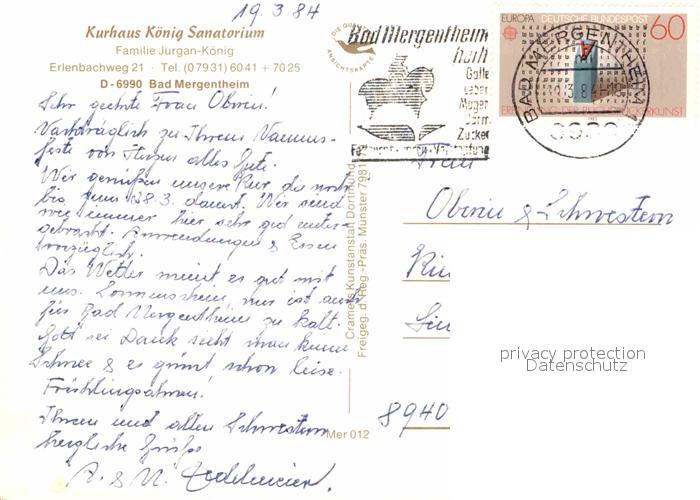 19.3.84
Kurhaus König Sanatorium
Familie Jurgan-König
Erlenbachweg 21 · Tel. (07931) 6041 + 7025
D-6990 Bad Mergentheim
Sehr geehrte Frau Oberin!
Nachträglich zu Ihrem Namens-
feste von Herzen alles Gute.
Wir genießen unsere Kur, die noch
bis zum 28.3. dauert. Wir sind
wie immer hier sehr gut unter-
gebracht. Anwendungen & Essen
vorzüglich.
Das Wetter meint es gut mit
uns. Sonnenschein, nur ist auch
für Bad Mergentheim zu kalt.
Gott sei Dank sieht man keinen
Schnee & es grünt schon leise.
Frühlingsahnen!
Ihnen und allen Schwestern
herzliche Grüße
A. & N.
Mer 012
Cramers Kunstanstalt Dortmund
Freigeg. d. Reg.-Präs. Münster 7981
DIE GUTE
ANSICHTSKARTE
Bad Mergentheim
heilt
Galle
Leber
Magen
Darm
Zucker
Fettsucht
Verstopfung
EUROPA DEUTSCHE BUNDESPOST 60
BAD MERGENTHEIM
19.3.84
6990
Frau
Oberin & Schwestern
8940
privacy protection
Datenschutz